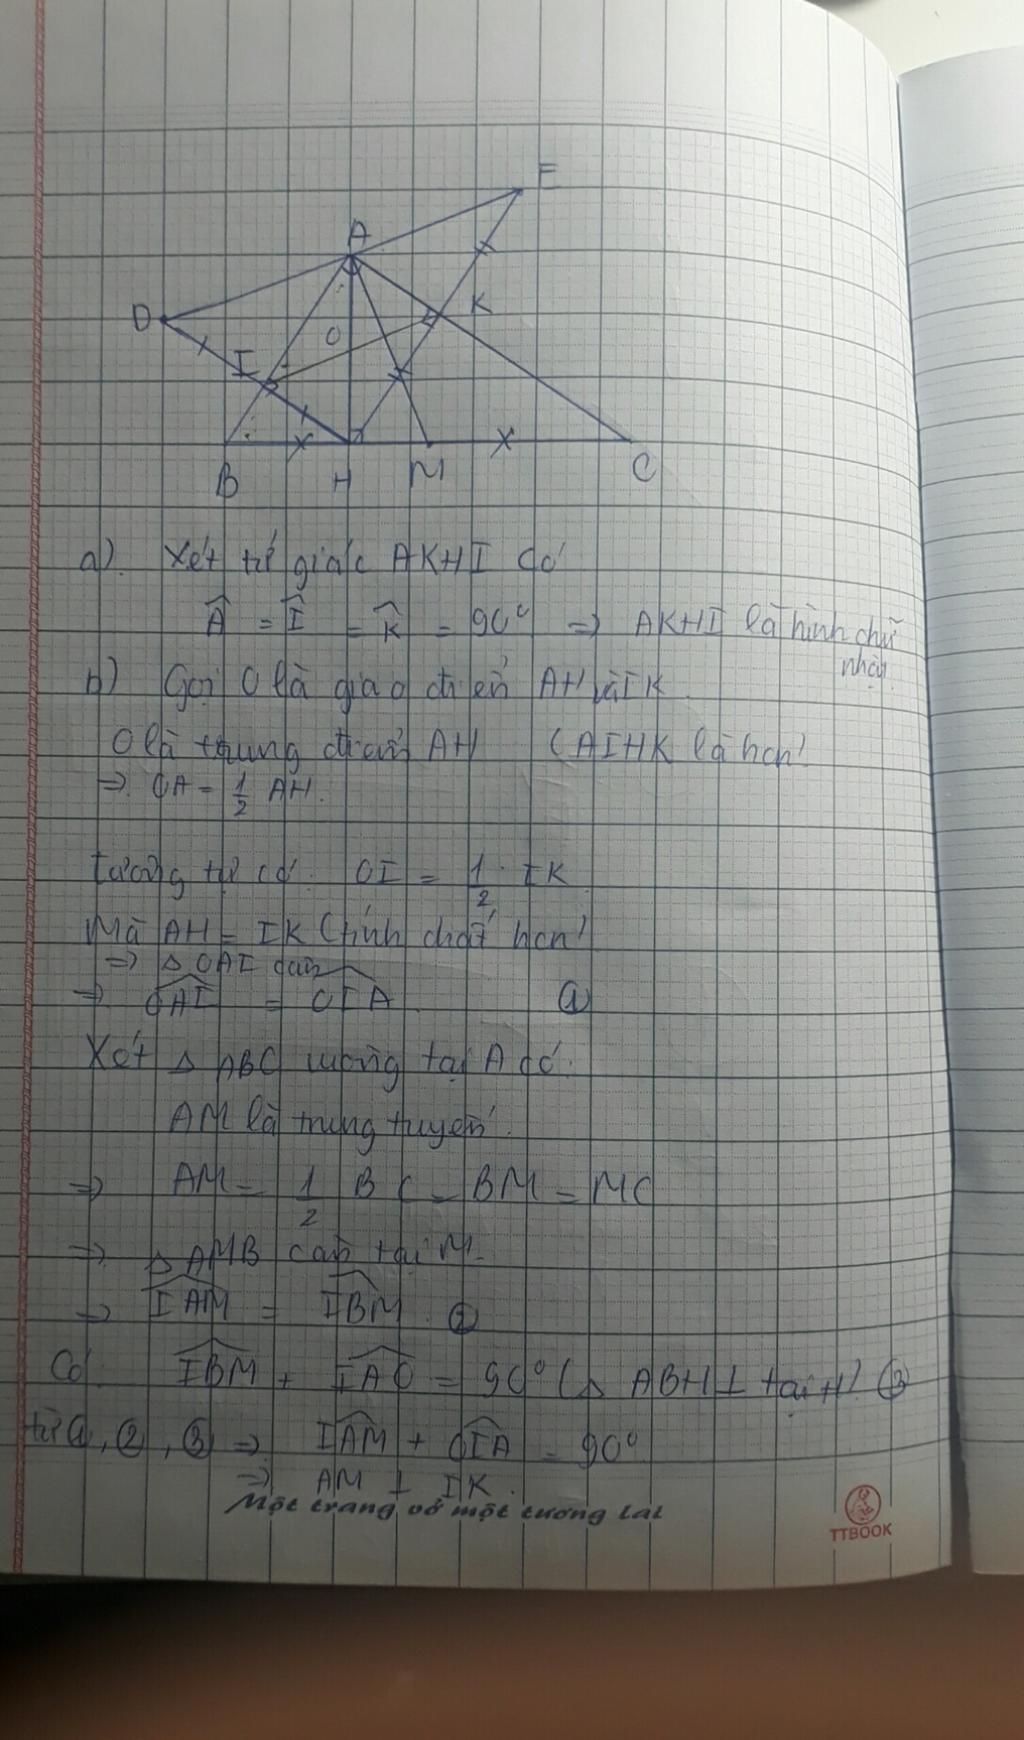 E
A
D
K
O
I
B H M C
a) Xét tứ giác AKHI có
Â = Î = K̂ = 90° => AKHI là hình chữ
nhật
b) Gọi O là giao điểm AH và IK
O là trung điểm AH (AIHK là hcn)
=> OA = 1/2 AH.
tương tự có. OI = 1/2 . IK
Mà AH = IK (tính chất hcn)
=> △ OAI cân
=> OAI = OIA ①
Xét △ ABC vuông tại A có:
AM là trung tuyến.
=> AM = 1/2 BC = BM = MC
=> △ AMB cân tại M.
=> IAM = IBM ②
Có IBM + IAO = 90° (△ ABH ⊥ tại H) ③
từ ①, ②, ③ => IAM + OIA = 90°
=> AM ⊥ IK.
Một trang vở một tương lai
TTBOOK